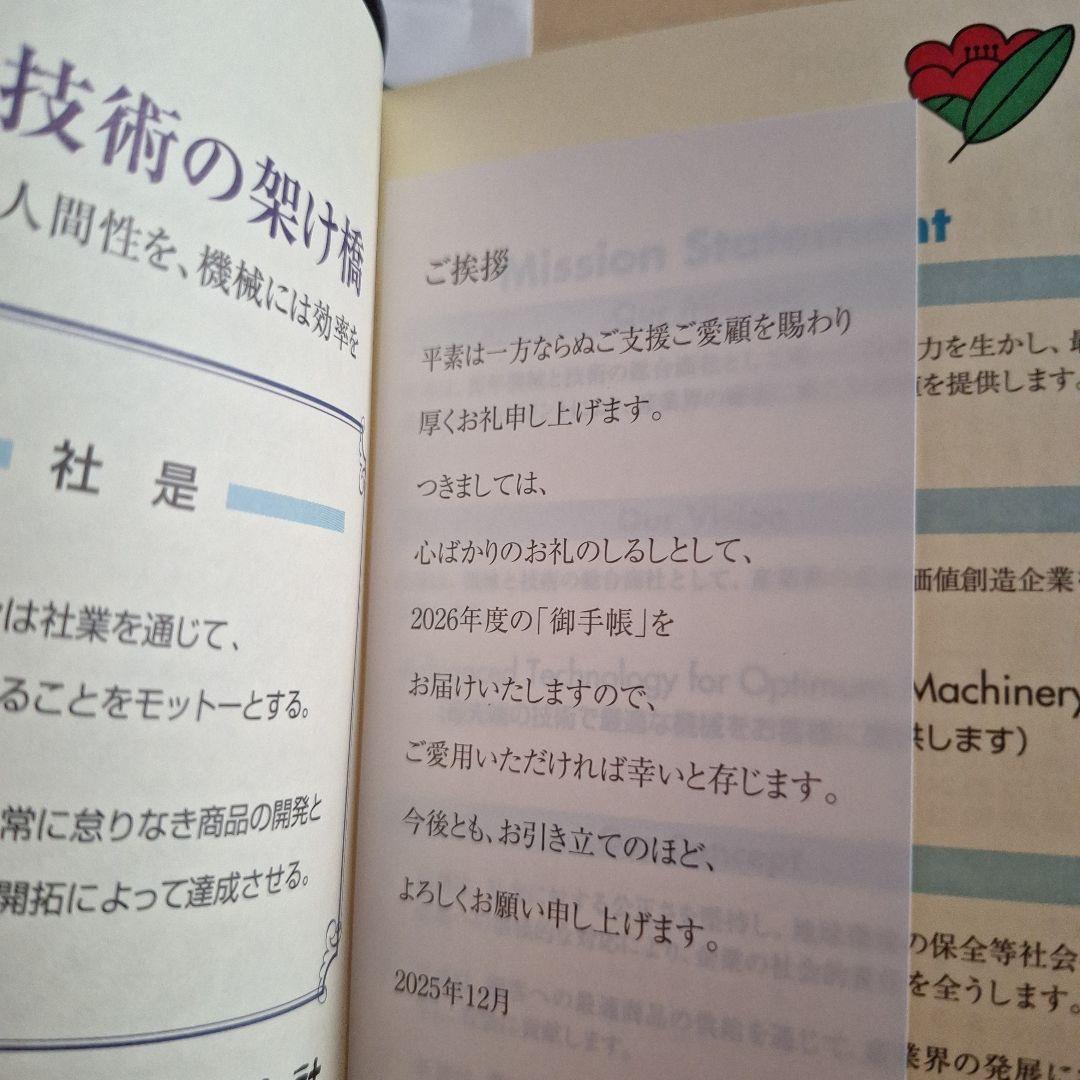 技術の架け橋
人間性を、機械には効率を
社 是
は社業を通じて、
ることをモットーとする。
常に怠りなき商品の開発と
開拓によって達成させる。
ご挨拶
平素は一方ならぬご支援ご愛顧を賜わり
厚くお礼申し上げます。
つきましては、
心ばかりのお礼のしるしとして、
2026年度の「御手帳」を
お届けいたしますので、
ご愛用いただければ幸いと存じます。
今後とも、お引き立てのほど、
よろしくお願い申し上げます。
2025年12月
Mission Statement
力を生かし、最
値を提供します。
Our Vision
価値創造企業
Advanced Technology for Optimum Machinery
供します）
の保全等社会
を全うします。
業界の発展に